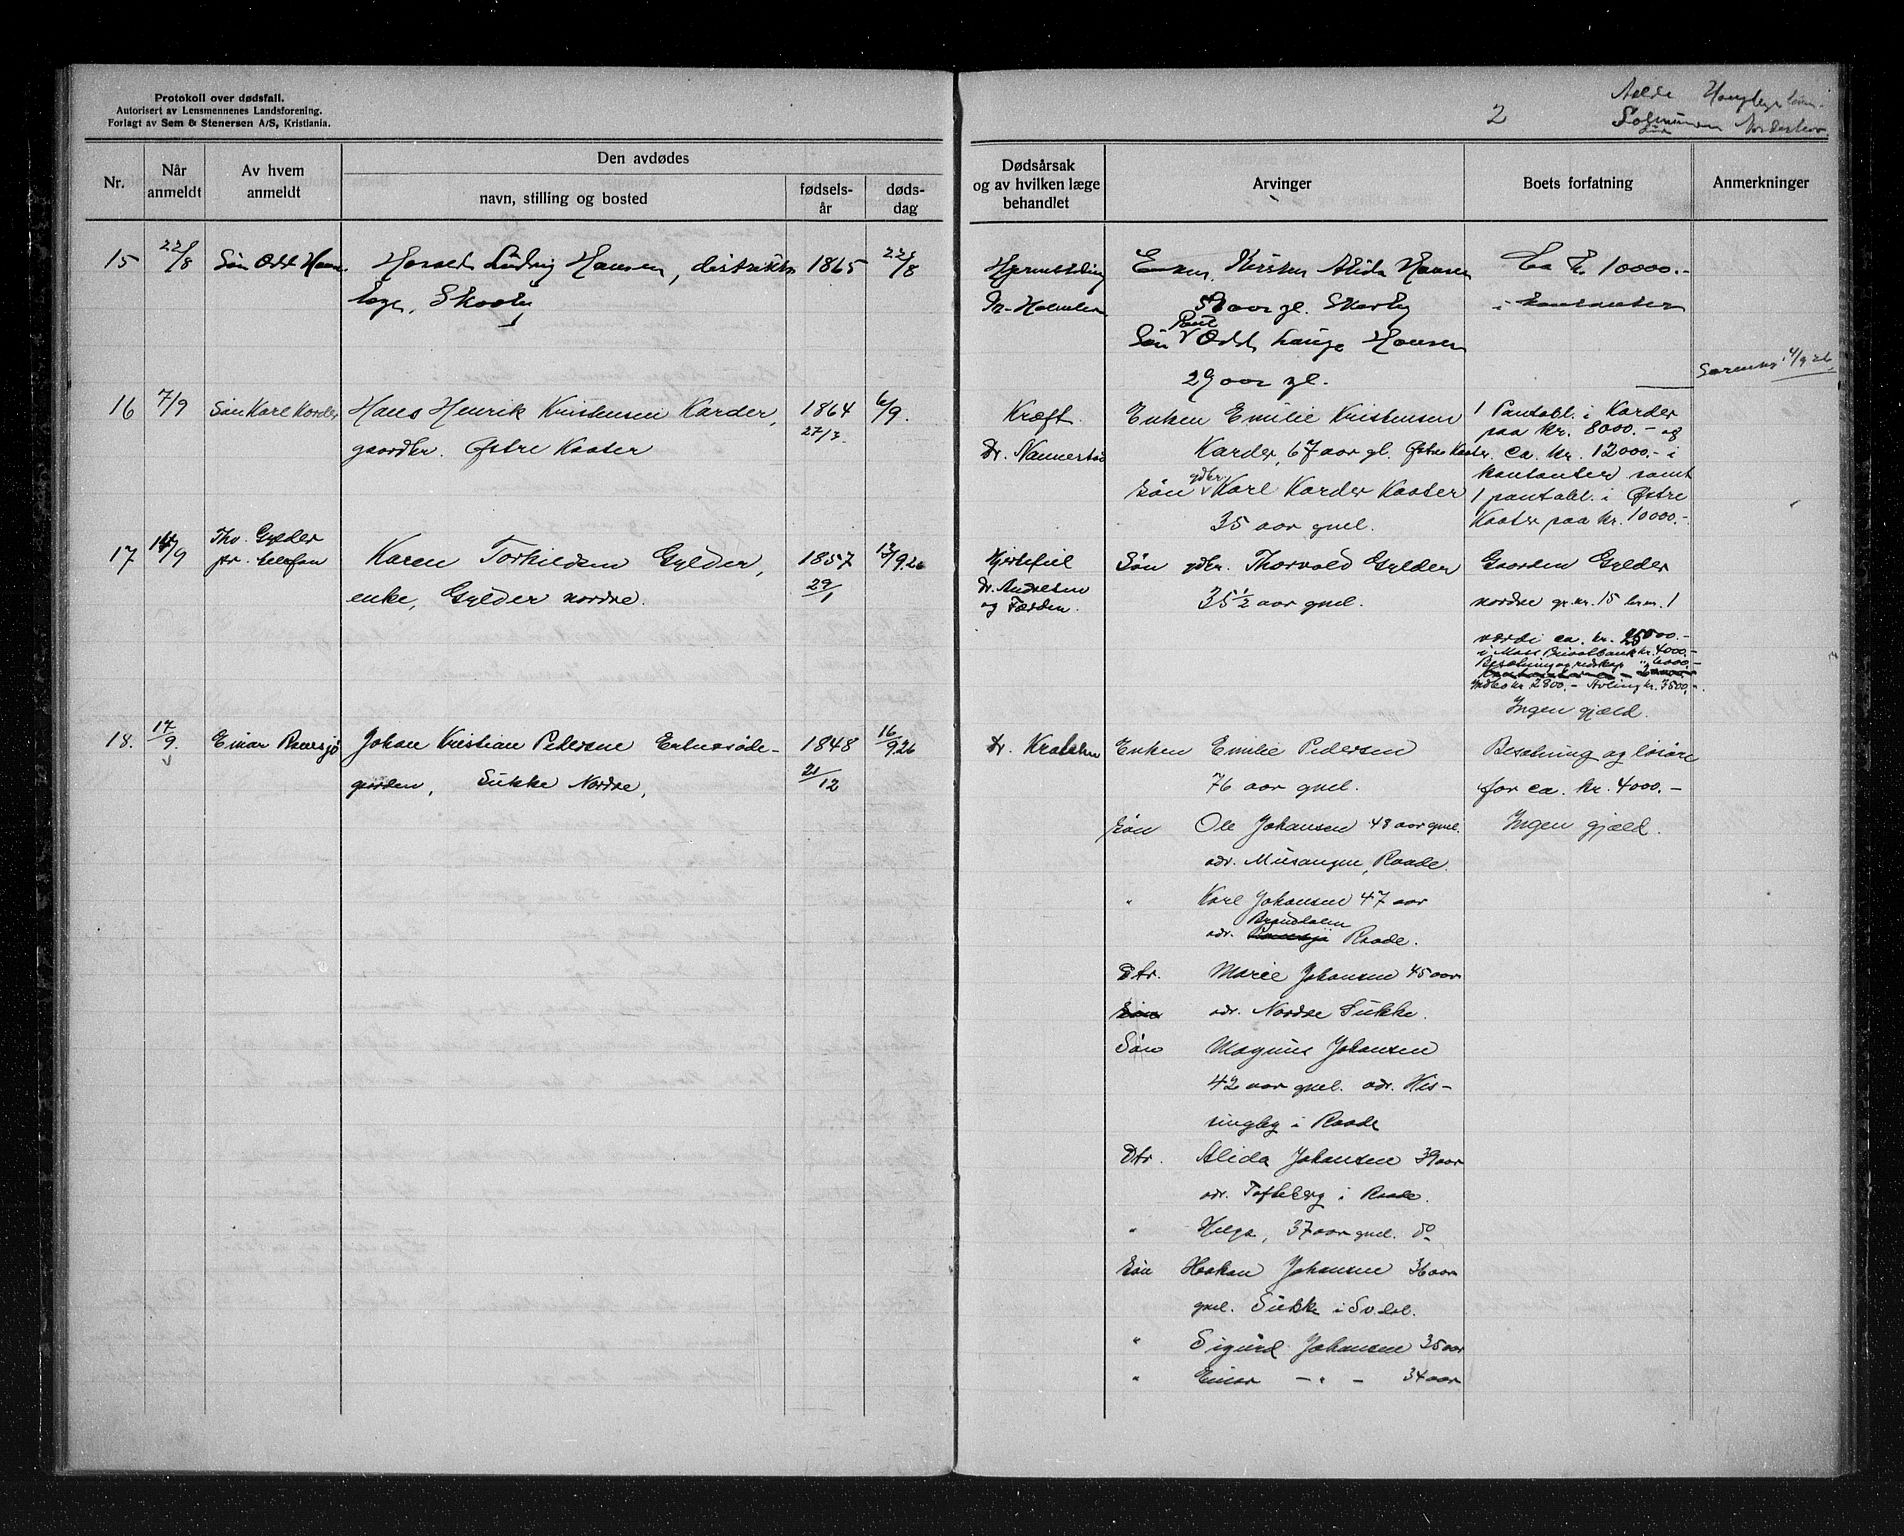 Protokoll over dødsfall.
Autorisert av Lensmennenes Landsforening.
Forlagt av Sem & Stenersen A/S, Kristiania.
Nr.
Når anmeldt
Av hvem anmeldt
Den avdødes
navn, stilling og bosted
fødsels-år
døds-dag
15 22/8 Søn Odd Hans. Harald Ludvig Hansen, distrikts 1865 22/8
læge, Skaaby
16 7/9 Søn Karl Karder Hans Henrik Kristensen Karder, 1864 6/9.
gaardbr. Østre Kaater 27/3.
17 14/9 Thv. Gylder
pr. telefon Karen Torkildsen Gylder, 1857 13/9.26
enke, Gylder nordre. 29/1
18. 17/9. Einar Ramsjø Johan Kristian Pedersen 1848 16/9 26
gården, Sukke Nordre, 21/12
2
Dødsårsak og av hvilken læge behandlet
Arvinger
Boets forfatning
Anmerkninger
Enken Kirsten Alida Hansen Ca kr 10000.-
Dr. 58 aar gl. Skaaby i kontanter
Paul
Søn v Odd Lange Hansen
29 aar gl. 4/9 26
Kræft. Enken Emilie Kristensen 1 Pantobl. i Karder
paa kr. 8000.- og
Dr. Nannestad Karder, 67 aar gl. Østre Kaater. ca. kr. 12000.- i
kontanter samt
gdbr.
Søn v Karl Karder Kaater 1 pantobl. i Østre
35 aar gml. Kaater paa kr. 10000.-
Hjertefeil Søn gdbr. Thorvald Gylder Gaarden Gylder
Dr. Andresen
og Færden. 35 1/2 aar gml. nordre gr.nr. 15 br.nr. 1
værdi ca. kr. 25000.-
i Moss Privatbank kr. 4000.-
Besætning og redskap " 6000.-
Indbo kr 2800.- Avling kr. 3500.-
Ingen gjæld.
Dr. Enken Emilie Pedersen Besætning og løsøre
76 aar gml. for ca. kr. 4000.-
Søn Ole Johansen 48 aar gml. Ingen gjæld.
adr. Musangen, Raade.
" Karl Johansen 47 aar
Brandholen
adr. Raade.
Dtr. Marie Johansen 45 aar
Søn adr. Nordre Sukke.
Søn Magnus Johansen
42 aar gml. adr. His-
singby i Raade
Dtr. Alida Johansen 39 aar
adr. Tofteberg i Raade.
" Helga, 37 aar gml. do
Søn Haakon Johansen 36 aar
gml. Sukke i Sv.dal.
" Sigurd Johansen 35 aar
" Einar - " - 34 aar